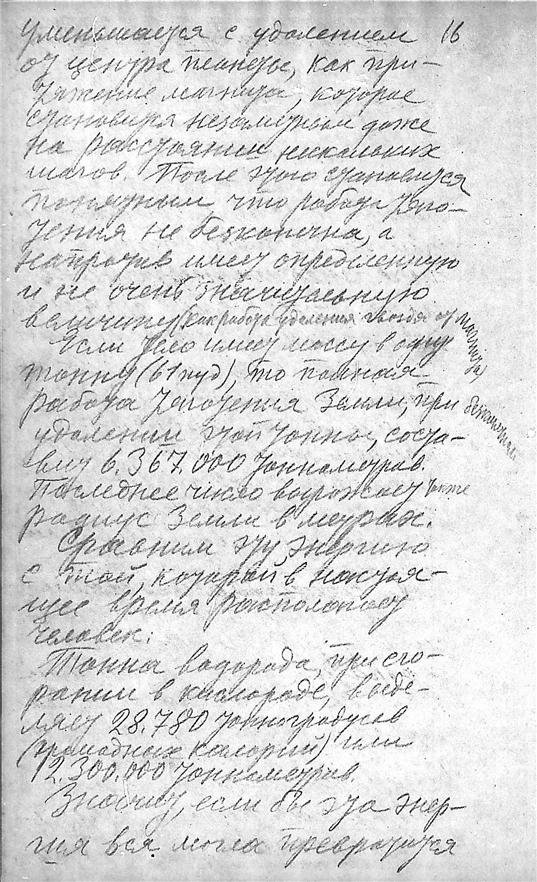 уменьшается с удалением 16
от центра планеты, как при-
тяжение магнита, которое
становится незаметным даже
на расстоянии нескольких
шагов. После этого становится
понятным что работа тяго-
тения не бесконечна, а
напротив имеет определенную
и не очень значительную
величину (как работа удаления гвоздя от магнита)
Если тело имеет массу в одну
тонну (61 пуд), то полная
работа тяготения Земли, при бесконечном
удалении этой тонны, соста-
вит 6.367.000 тоннометров.
Последнее число выражает также
радиус Земли в метрах.
Сравним эту энергию
с той, которой в настоя-
щее время располагает
человек.
Тонна водорода, при сго-
рании в кислороде, выде-
ляет 28.780 тонноградусов
(громадных калорий) или
12.300.000 тоннометров.
Значит, если бы эта энер-
гия вся могла превратится